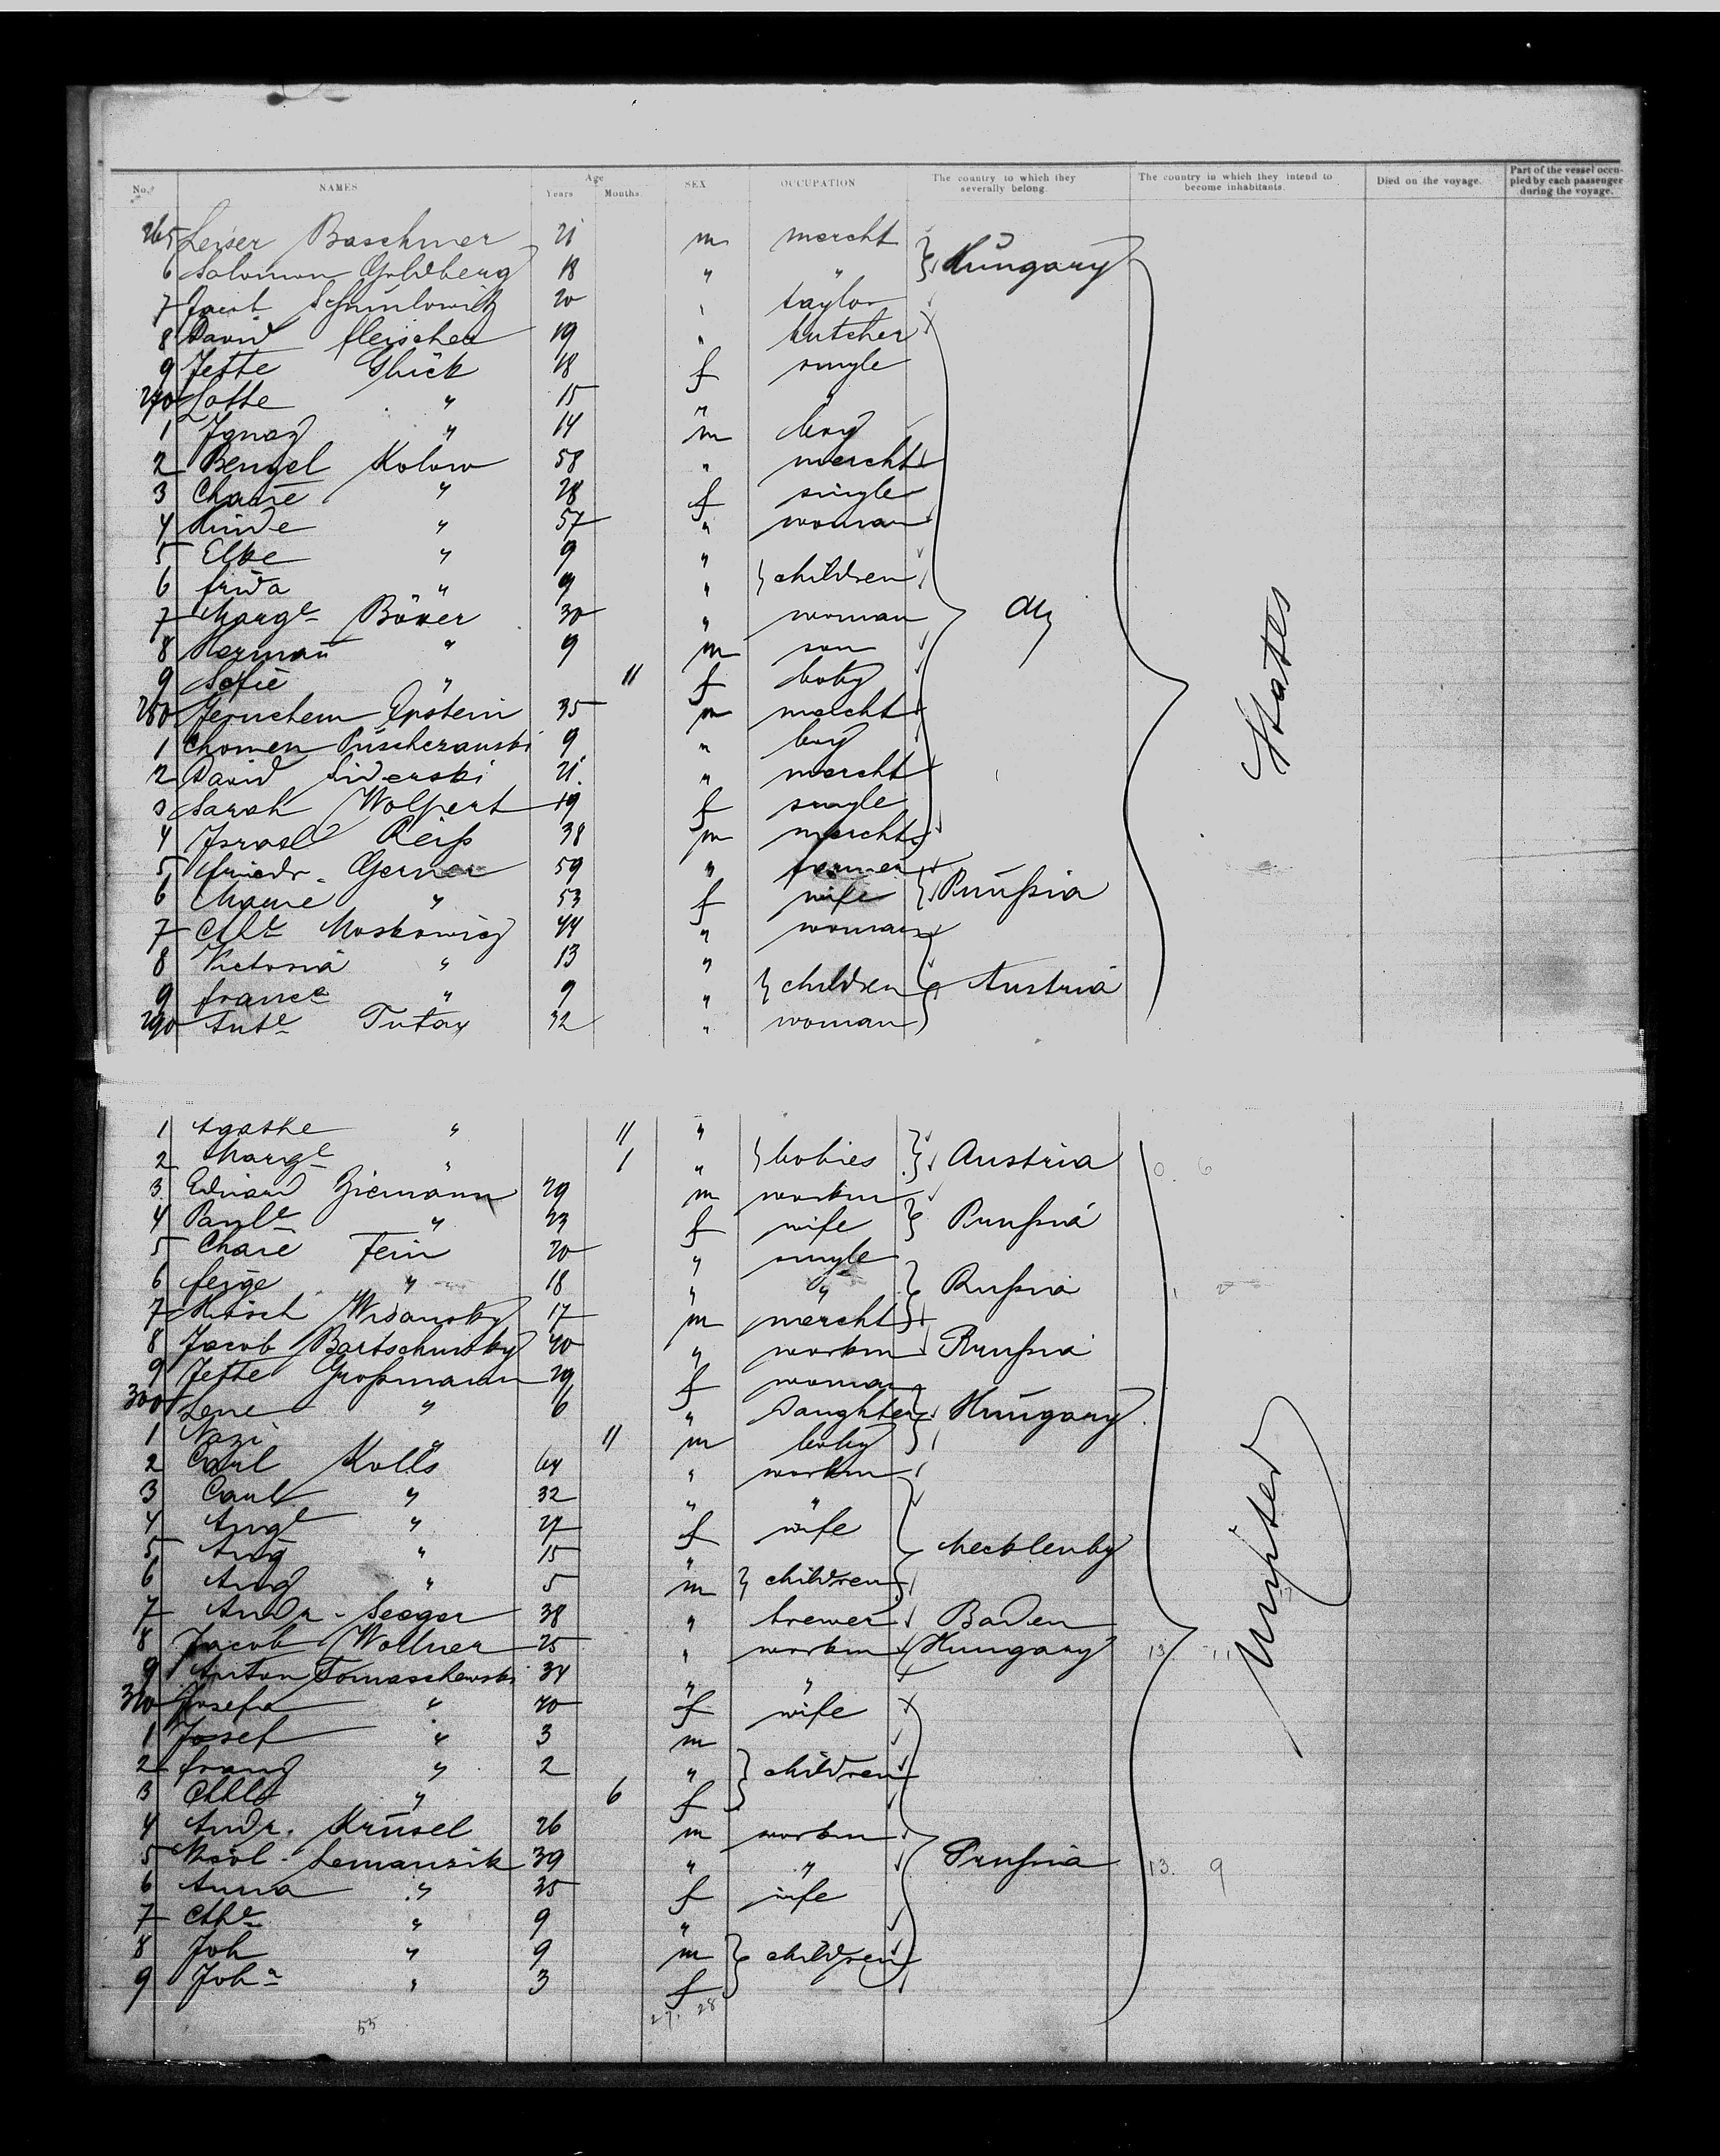 No. NAMES Age Years Months SEX OCCUPATION The country to which they severally belong. The country in which they intend to become inhabitants. Died on the voyage. Part of the vessel occupied by each passenger during the voyage.
265 Leiser Baschmer 21 m mercht
6 Salomon Goldberg 18 " " Hungary
7 Jacob Schmulowitz 20 " taylor
8 David Fleischer 19 " butcher
9 Jette Glück 18 f single
270 Lotte " 15 " "
1 Ignaz " 14 m boy
2 Bengel Kolow 58 " mercht
3 Chaie " 28 f single
4 Hinde " 57 " woman
5 Elke " 9 "
6 Frida " 9 " children
7 Marg^e Böxer 30 " woman
8 Herman " 9 m son
9 Sofie " 11 f baby
280 Jeruchem Epstein 35 m mercht
1 Chomen Puscheranski 9 " boy
2 David Siderski 21 " mercht
3 Sarah Wolpert 19 f single
4 Israel Reiß 38 m mercht
5 Friedr. Gerner 59 " farmer
6 Marie " 53 f wife Prußia
7 Cth^e Moskowicz 44 " woman
8 Victoria " 13 "
9 France " 9 " children Austria
290 Ant^e Tutay 32 " woman
States
1 Agathe " 11 "
2 Marg^e " 1 " babies Austria
3 Eduard Ziemann 29 m workm
4 Paul^e " 23 f wife Prußia
5 Chaie Fein 20 " single
6 Feige " 18 " " Rußia
7 Hirsch Widansky 17 m mercht
8 Jacob Bartschinsky 40 " workm Rußia
9 Jette Großmann 29 f woman
300 Lene " 6 " daughter Hungary
1 Nazi " 11 m baby
2 Carl Kolls 64 " workm
3 Carl " 32 " "
4 Aug^e " 27 f wife
5 Aug " 15 " Mecklenbg
6 Aug " 5 m children
7 Andr. Seeger 38 " brewer Baden
8 Jacob Wollner 25 " workm Hungary 13. 11
9 Anton Tomaschewski 34 " "
310 Josefa " 40 f wife
1 Josef " 3 m
2 Franz " 2 " children
3 " 6 f
4 Andr. Krüsel 26 m workm
5 Lemanzik 39 " " Prußia 13. 9
6 Anna " 35 f wife
7 Cth^e " 9 "
8 Joh " 9 m children
9 Joh^a " 3 f
United
55 27. 28